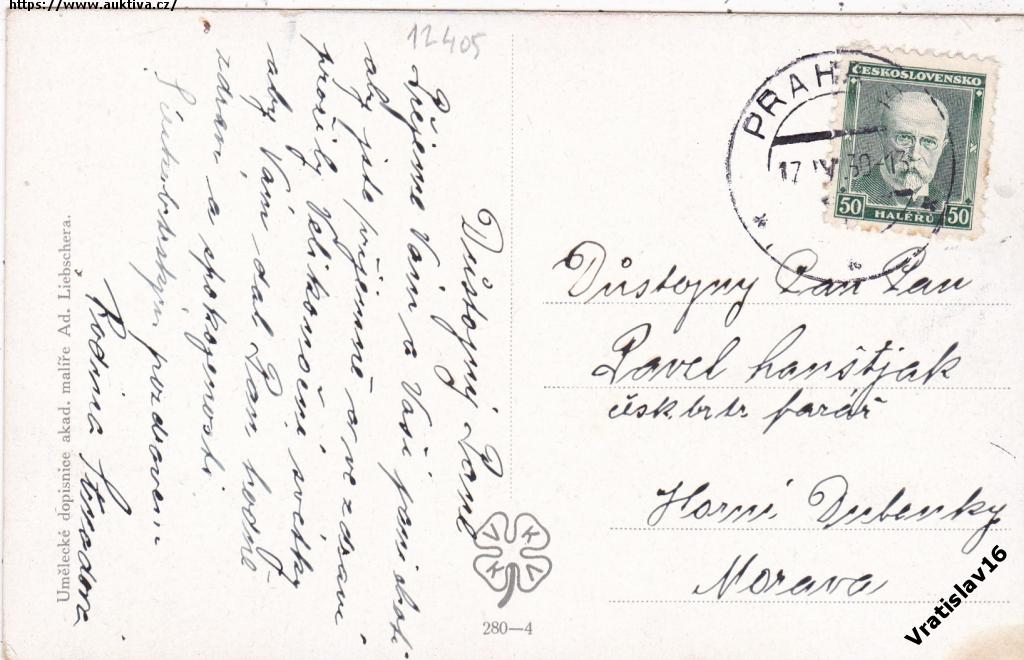 https://www.auktiva.cz/
12405
Důstojný Pane
Přejeme Vám a Vaší paní
aby jste příjemně a ve zdraví
prožily Velikonoční svátky
aby Vám dal Pán hodně
zdraví a spokojenosti
pozdravem
Rodina
Umělecké dopisnice akad. malíře Ad. Liebschera.
V K K V
280—4
PRAHA
17 IV 30-13
ČESKOSLOVENSKO
50 HALÉŘŮ 50
Důstojny Pan Pan
Pavel Hanštjak
čsk brtr farář
Horní Dubenky
Morava
Vratislav16